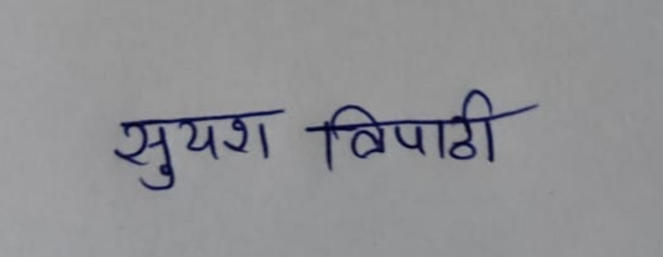 सुयश त्रिपाठी